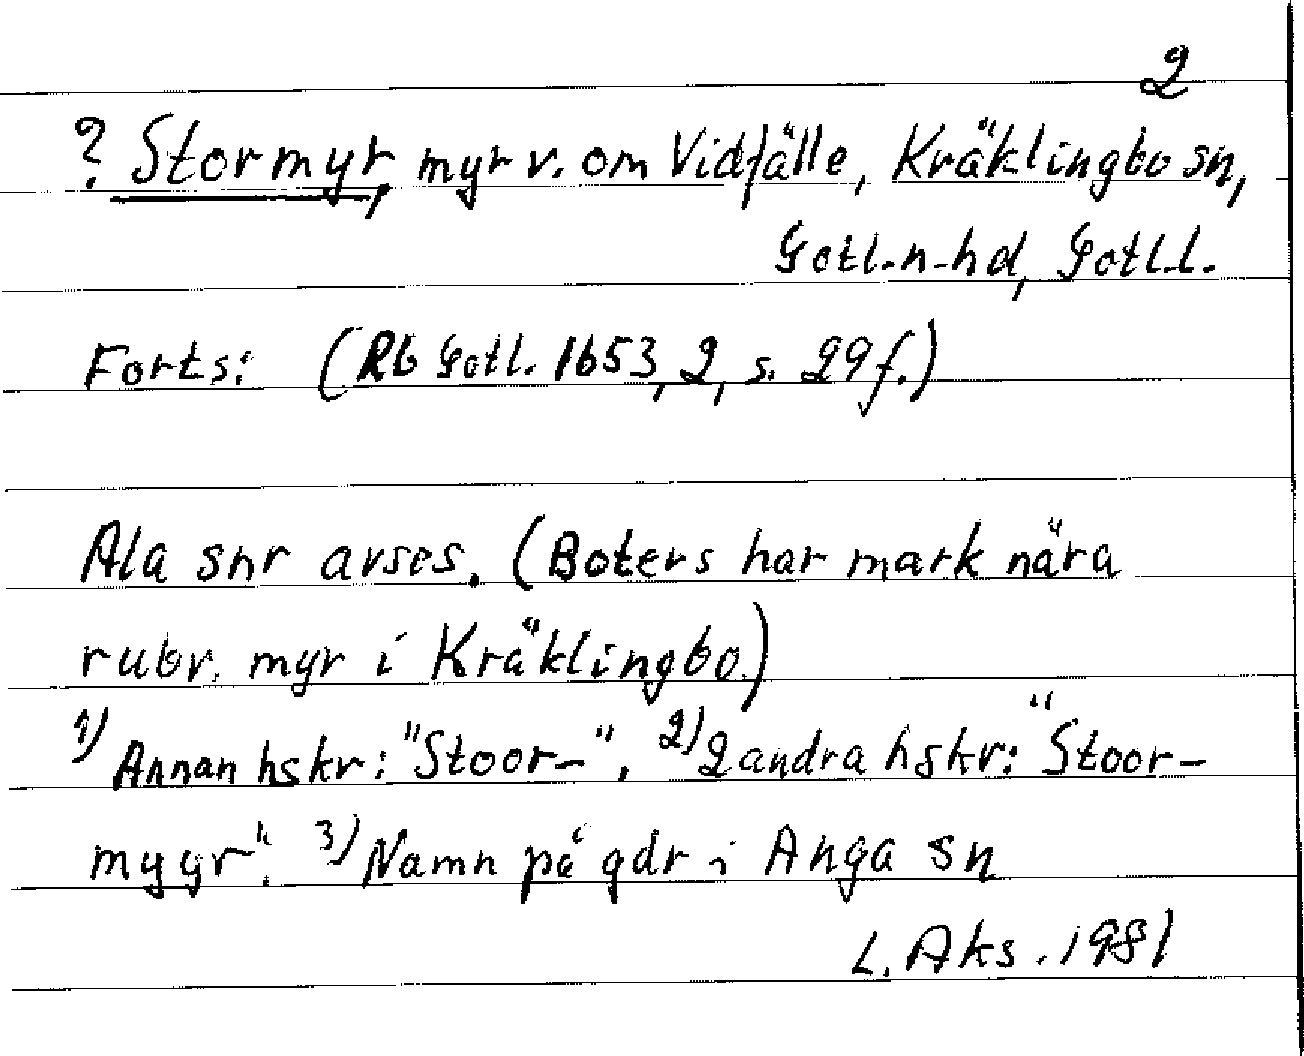 2
? Stormyr, myr v. om Vidfälle, Kräklingbo sn,
Gotl. n. hd, Gotl. l.
Forts: (Rb Gotl. 1653, 2, s. 29 f.)
Ala snr avses. (Boters har mark nära
rubr. myr i Kräklingbo.)
1) Annan hskr: "Stoor-". 2) 2 andra hskr: "Stoor-
mygr". 3) Namn på gdr i Anga sn
L. Aks. 1981